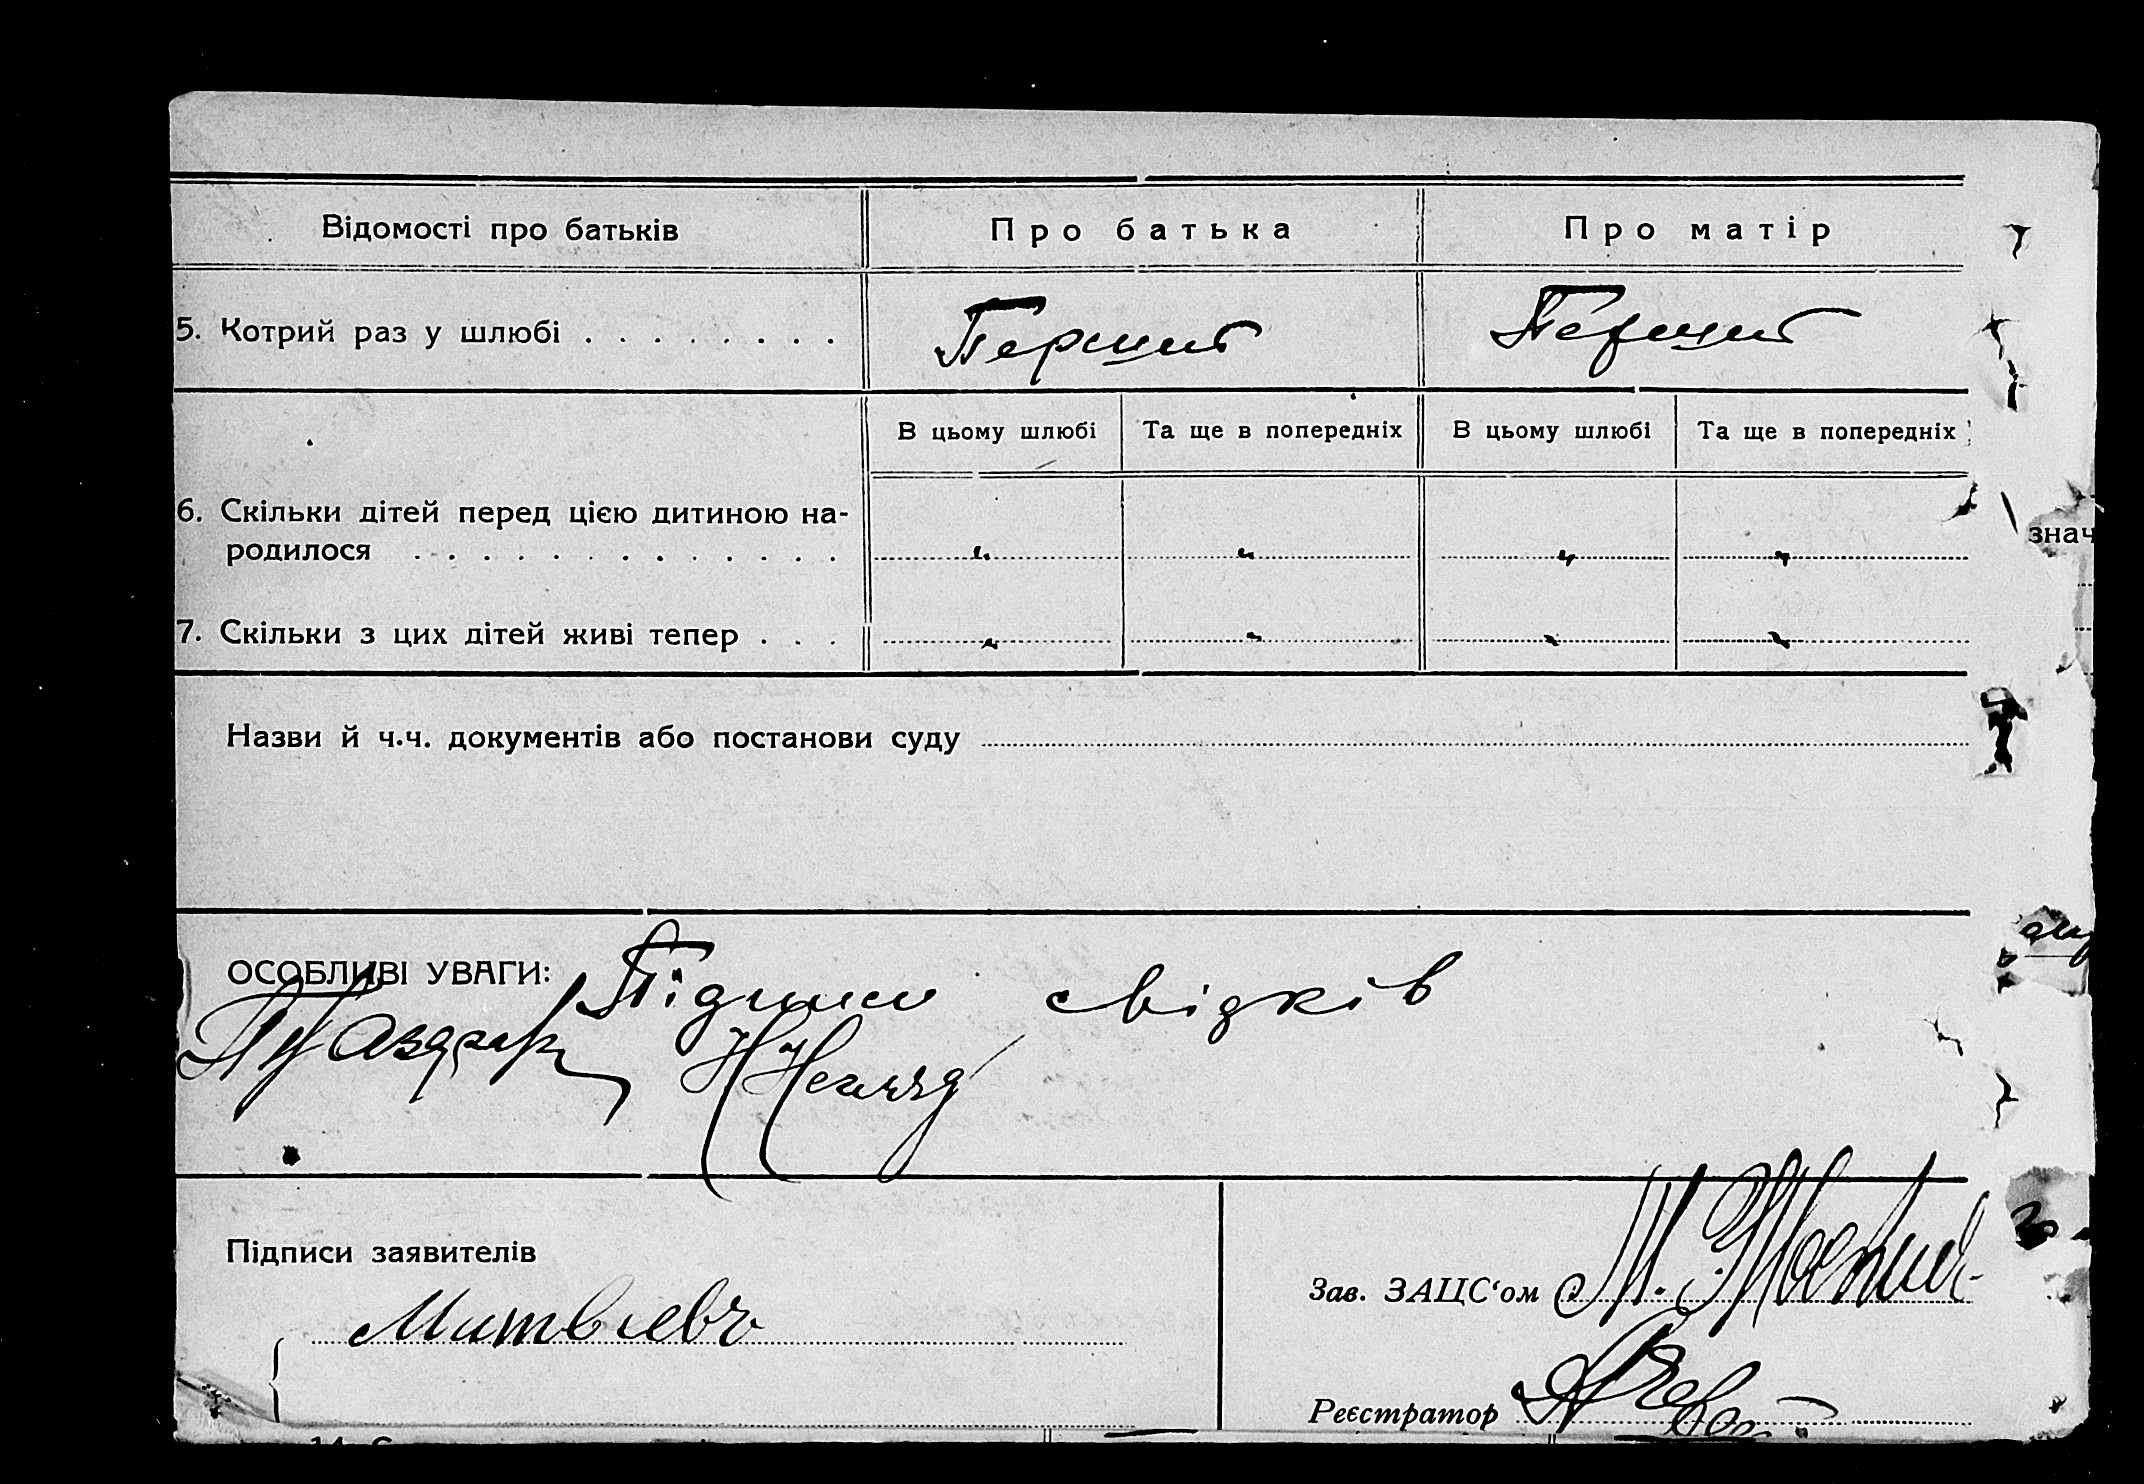 Відомості про батьків Про батька Про матір
5. Котрий раз у шлюбі . . . . . . . . Перший Перший
В цьому шлюбі Та ще в попередніх В цьому шлюбі Та ще в попередніх
6. Скільки дітей перед цією дитиною на-
родилося . . . . . . . . . . . . .
знач
7. Скільки з цих дітей живі тепер . . .
Назви й ч.ч. документів або постанови суду
ОСОБЛИВІ УВАГИ: Підписи свідків
Підписи заявителів
Зав. ЗАЦС‘ом
Реєстратор